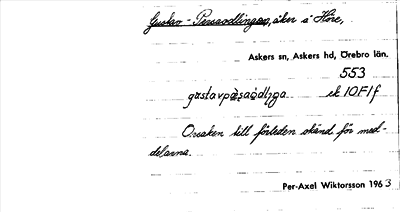 Gustav-Persaodlingen, åker å Höre,
Askers sn, Askers hd, Örebro län.
553
gustavpæsaodlŋga ek 10F1f
Orsaken till förleden okänd för med-
delarna.
Per-Axel Wiktorsson 1963